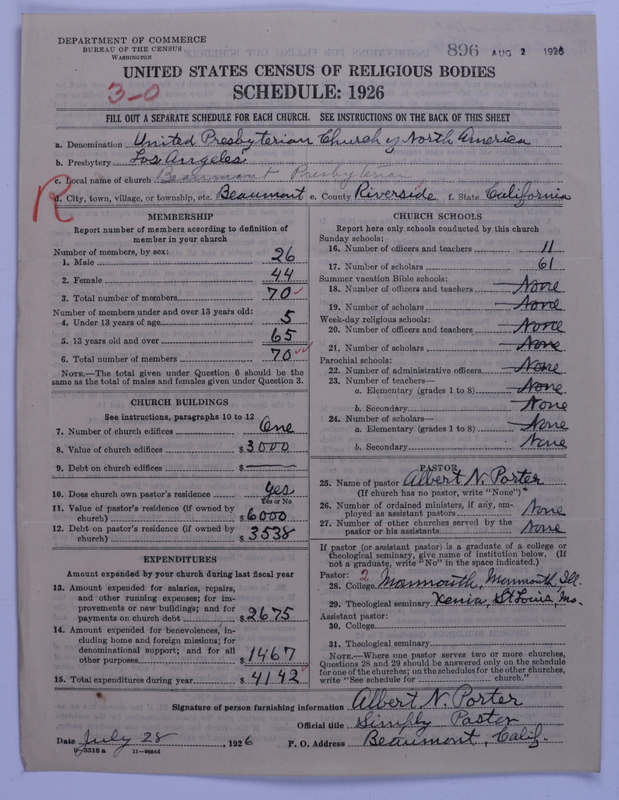 DEPARTMENT OF COMMERCE
BUREAU OF THE CENSUS
WASHINGTON
896 AUG 2 1926
UNITED STATES CENSUS OF RELIGIOUS BODIES
3-0
SCHEDULE: 1926
FILL OUT A SEPARATE SCHEDULE FOR EACH CHURCH. SEE INSTRUCTIONS ON THE BACK OF THIS SHEET
a. Denomination United Presbyterian Church of North America
b. Presbytery Los Angeles
c. Local name of church Beaumont Presbyterian
R
d. City, town, village, or township, etc. Beaumont e. County Riverside f. State California
MEMBERSHIP
Report number of members according to definition of
member in your church
Number of members, by sex:
1. Male 26
2. Female 44
3. Total number of members 70
Number of members under and over 13 years old:
4. Under 13 years of age 5
5. 13 years old and over 65
6. Total number of members 70
NOTE.—The total given under Question 6 should be
same as the total of males and females given under Question 3.
CHURCH BUILDINGS
See instructions, paragraphs 10 to 12
7. Number of church edifices One
8. Value of church edifices $3000
9. Debt on church edifices $
10. Does church own pastor's residence yes
Yes or No
11. Value of pastor's residence (if owned by
church) $6000
12. Debt on pastor's residence (if owned by
church) $3538
EXPENDITURES
Amount expended by your church during last fiscal year
13. Amount expended for salaries, repairs,
and other running expenses; for im-
provements or new buildings; and for
payments on church debt $2675
14. Amount expended for benevolences, in-
cluding home and foreign missions; for
denominational support; and for all
other purposes $1467
15. Total expenditures during year $4142
CHURCH SCHOOLS
Report here only schools conducted by this church
Sunday schools:
16. Number of officers and teachers 11
17. Number of scholars 61
Summer vacation Bible schools:
18. Number of officers and teachers None
19. Number of scholars None
Week-day religious schools:
20. Number of officers and teachers None
21. Number of scholars None
Parochial schools:
22. Number of administrative officers None
23. Number of teachers—
a. Elementary (grades 1 to 8) None
b. Secondary None
24. Number of scholars—
a. Elementary (grades 1 to 8) None
b. Secondary None
PASTOR
25. Name of pastor Albert N. Porter
(If church has no pastor, write "None")
26. Number of ordained ministers, if any, em-
ployed as assistant pastors None
27. Number of other churches served by the
pastor or his assistants None
If pastor (or assistant pastor) is a graduate of a college or
theological seminary, give name of institution below. (If
not a graduate, write "No" in the space indicated.)
Pastor: 2
28. College Monmouth, Monmouth, Ill.
29. Theological seminary Xenia, St Louis, Mo.
Assistant pastor:
30. College
31. Theological seminary
NOTE.—Where one pastor serves two or more churches,
Questions 28 and 29 should be answered only on the schedule
for one of the churches; on the schedules for the other churches,
write "See schedule for church."
Signature of person furnishing information Albert N. Porter
Official title Simply Pastor
Date July 28, 1926 P. O. Address Beaumont, Calif.
11—9924d